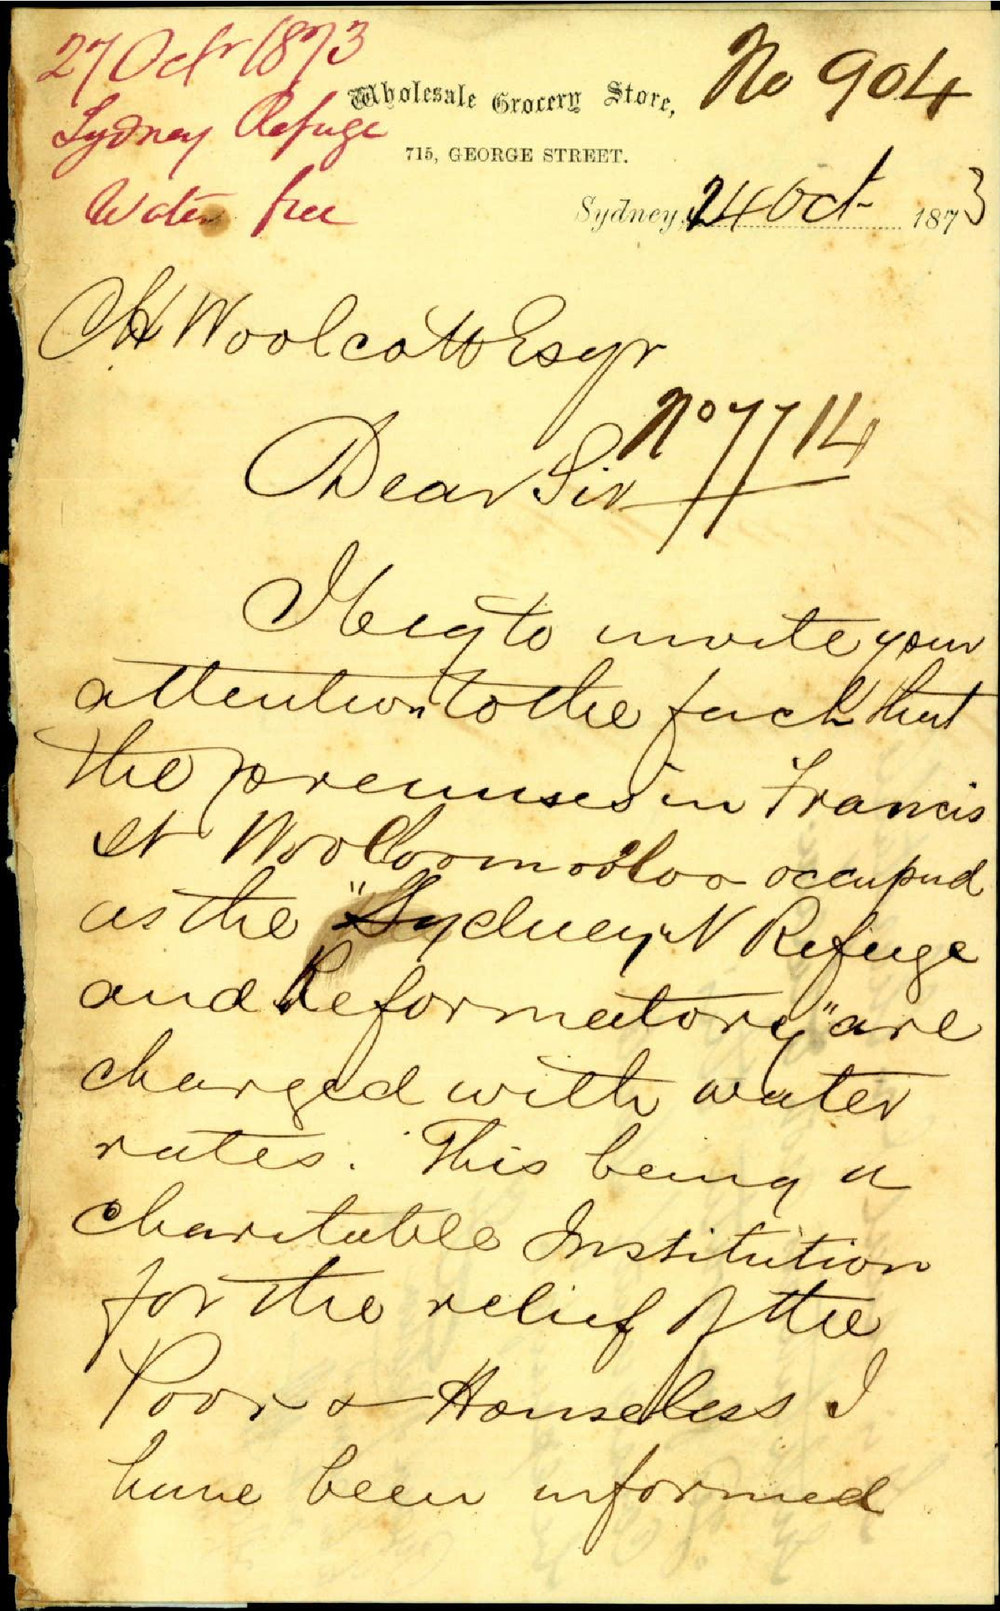 27 Octr 1873
Sydney Refuge
Water free
Wholesale Grocery Store,
715, GEORGE STREET.
No 904
Sydney, 24 Oct 1873
CH Woolcott Esqr
No 7714
Dear Sir
I beg to invite your
attention to the fact that
the premises in Francis
St Woolloomooloo occupied
as the "Sydney N Refuge
and Reformatory" are
charged with water
rates. This being a
charitable Institution
for the relief of the
Poor & Houseless I
have been informed